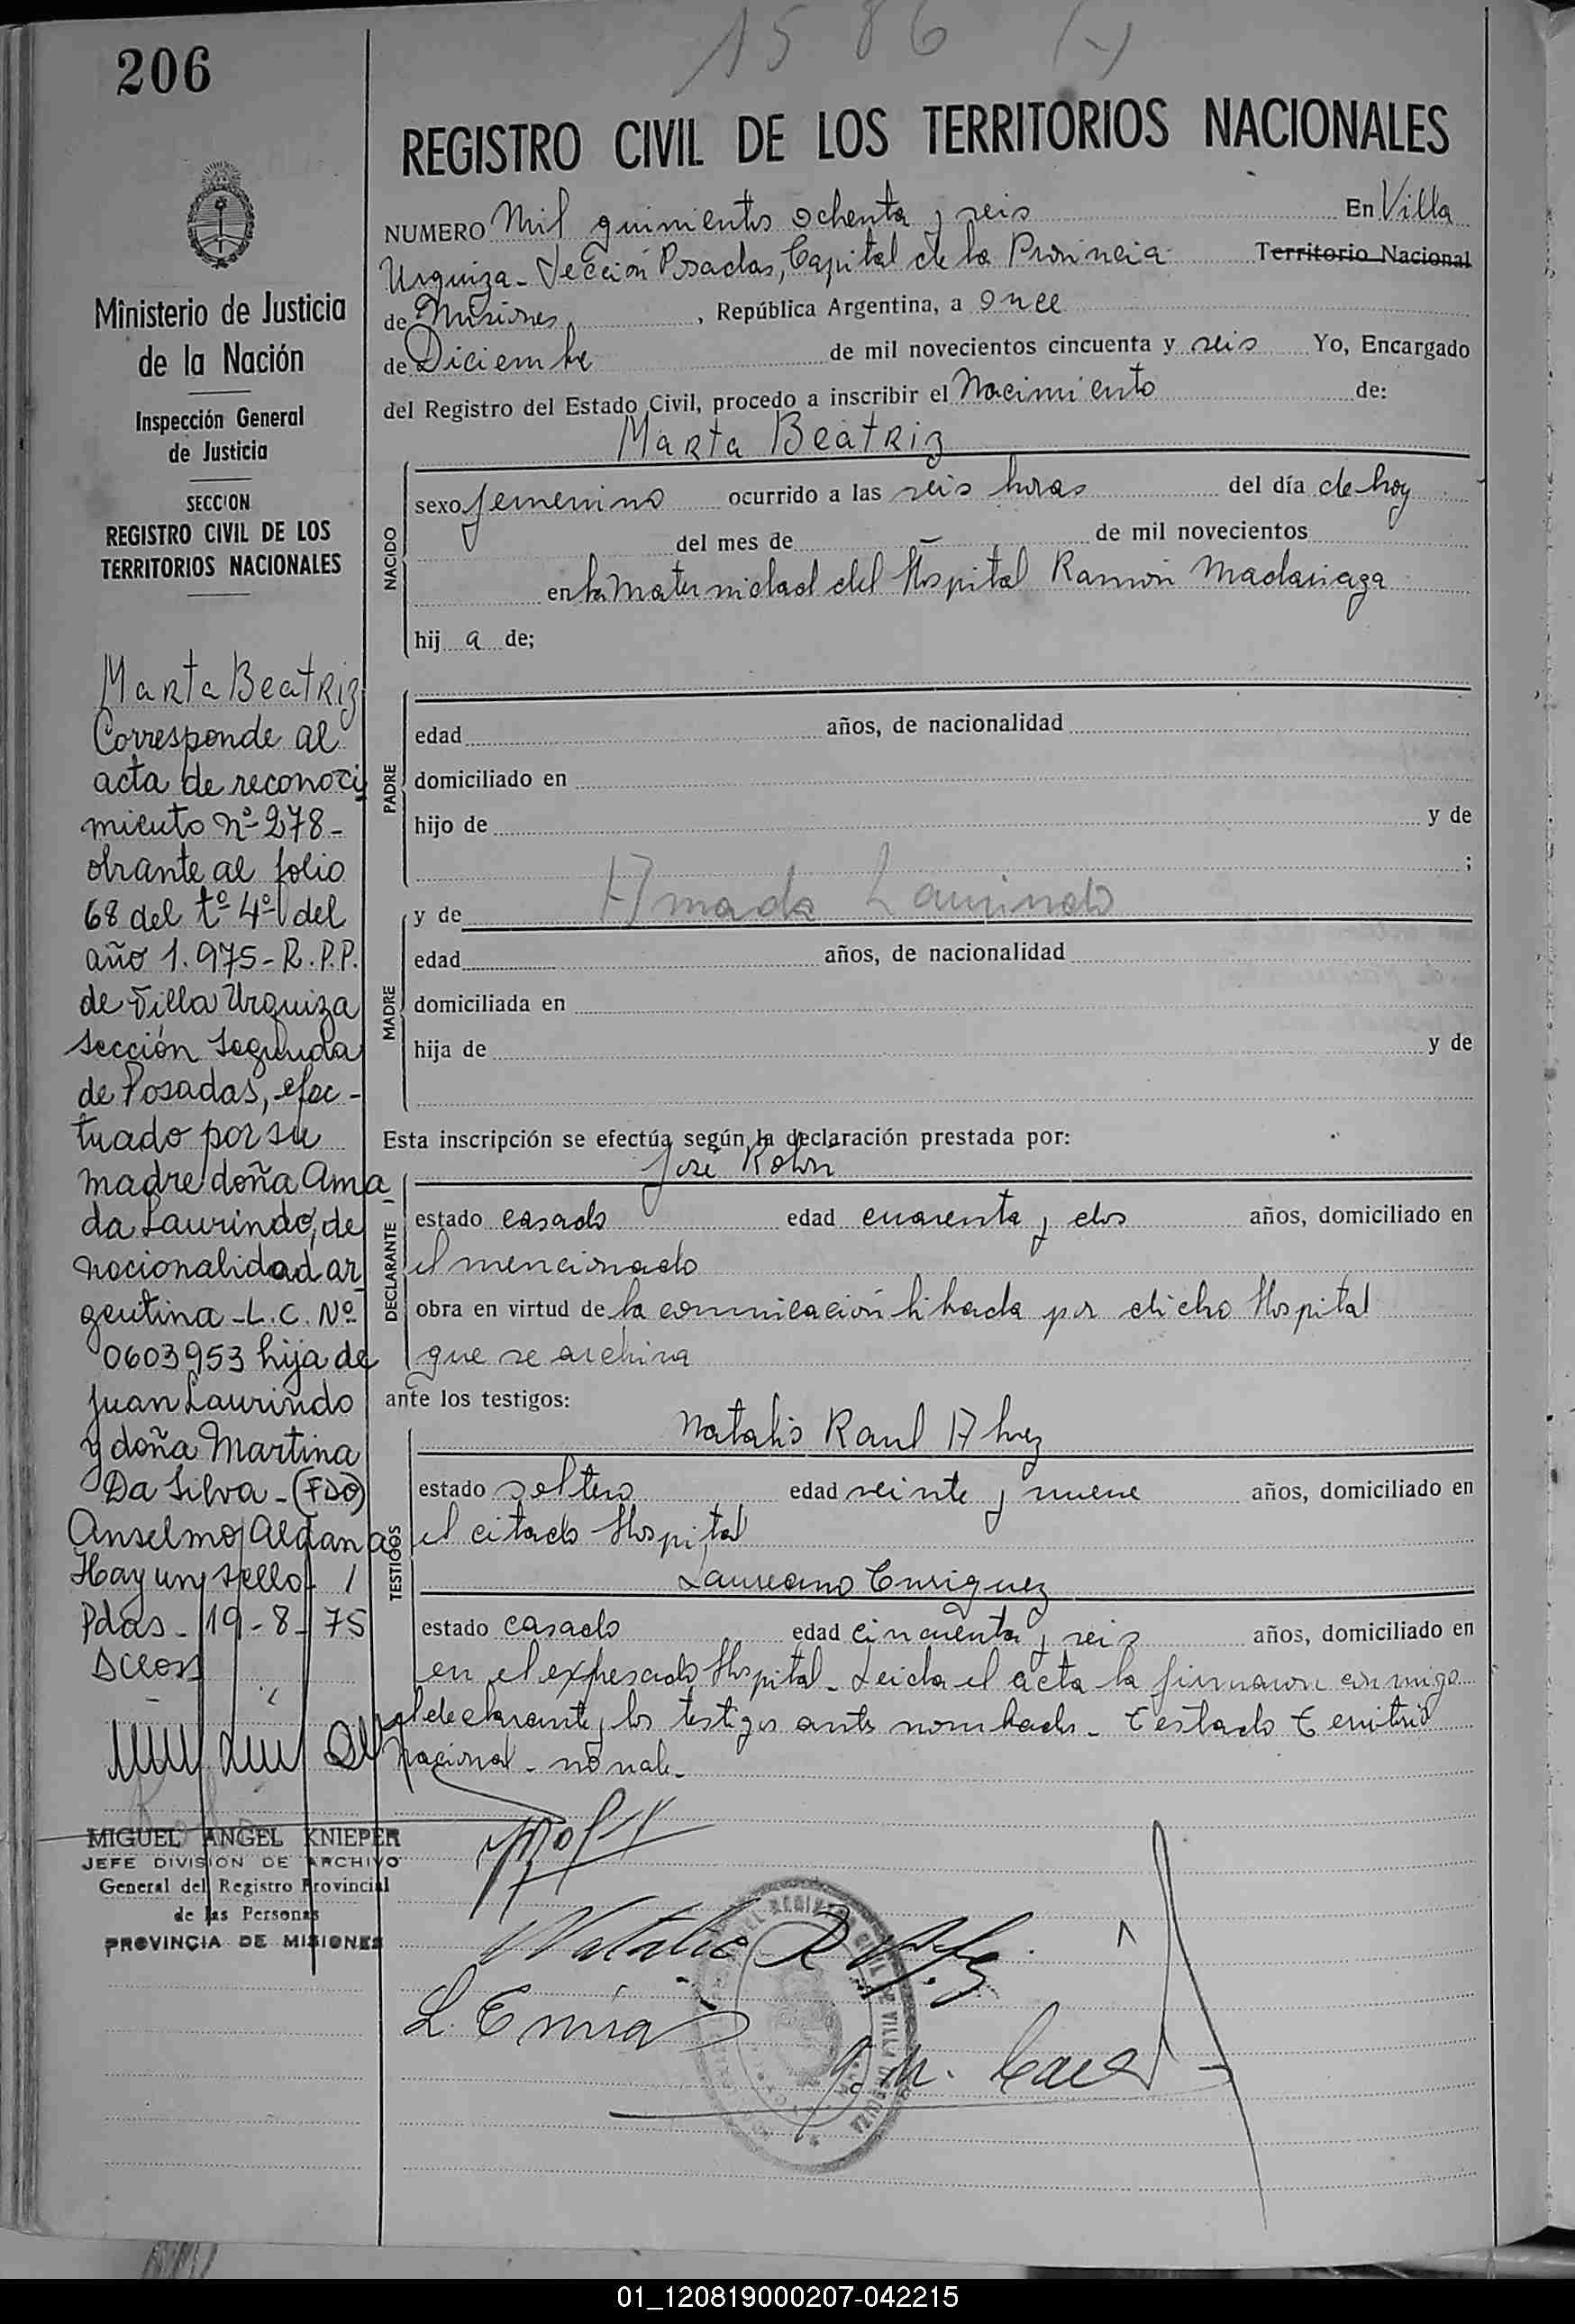 1586 (-)
206
REGISTRO CIVIL DE LOS TERRITORIOS NACIONALES
NUMERO Mil quinientos ochenta y seis En Villa
Urquiza - Sección Posadas, Capital de la Provincia Territorio Nacional
de Misiones, República Argentina, a once
de Diciembre de mil novecientos cincuenta y seis Yo, Encargado
del Registro del Estado Civil, procedo a inscribir el Nacimiento de:
Marta Beatriz
NACIDO
sexo femenino ocurrido a las seis horas del día de hoy
del mes de - de mil novecientos
en la Maternidad del Hospital Ramón Madariaga
hij a de;
PADRE
edad años, de nacionalidad
domiciliado en
hijo de y de
;
MADRE
y de Amada Laurindo
edad años, de nacionalidad
domiciliada en
hija de y de
Esta inscripción se efectúa según la declaración prestada por:
José
DECLARANTE
estado casado edad cuarenta y dos años, domiciliado en
el mencionado
obra en virtud de la comunicación librada por dicho Hospital
que se archiva
ante los testigos:
Natalio Raul Alvez
TESTIGOS
estado soltero edad veinte y nueve años, domiciliado en
el citado Hospital
Laureano Enriquez
estado casado edad cincuenta y seis años, domiciliado en
en el expresado Hospital - Leida el acta la firmaron conmigo
el declarante y los testigos antes nombrados - Testado Territorio
Nacional - no vale -
Natalio R
L. E
Ministerio de Justicia
de la Nación
Inspección General
de Justicia
SECCION
REGISTRO CIVIL DE LOS
TERRITORIOS NACIONALES
Marta Beatriz
Corresponde al
acta de reconoci
miento nº 278 -
obrante al folio
68 del tº 4º del
año 1.975 - R.P.P.
de Villa Urquiza
sección segunda
de Posadas, efec -
tuado por su
madre doña Ama
da Laurindo, de
nacionalidad ar
gentina - L.C. Nº
0603953 hija de
Juan Laurindo
y doña Martina
Da Silva - (FDO)
Anselmo Aldana
Hay un sello - /
Pdas - 19 - 8 - 75
MIGUEL ANGEL KNIEPER
JEFE DIVISION DE ARCHIVO
General del Registro Provincial
de las Personas
PROVINCIA DE MISIONES
01_120819000207-042215